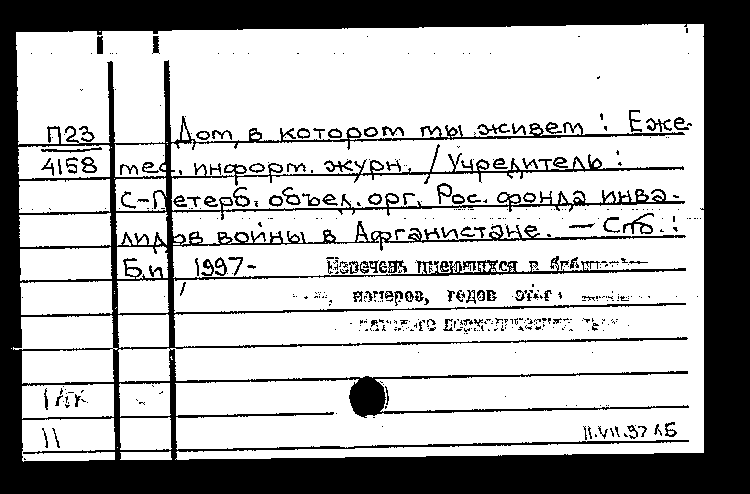 П23 Дом, в котором ты живешь : Еже-
4158 мес. информ. журн. / Учредитель :
С-Петерб. объед. орг. Рос. фонда инва-
лидов войны в Афганистане. — Спб. :
Б.и, 1997- Перечень имеющихся в
номеров, годов
11.VII.97 АБ